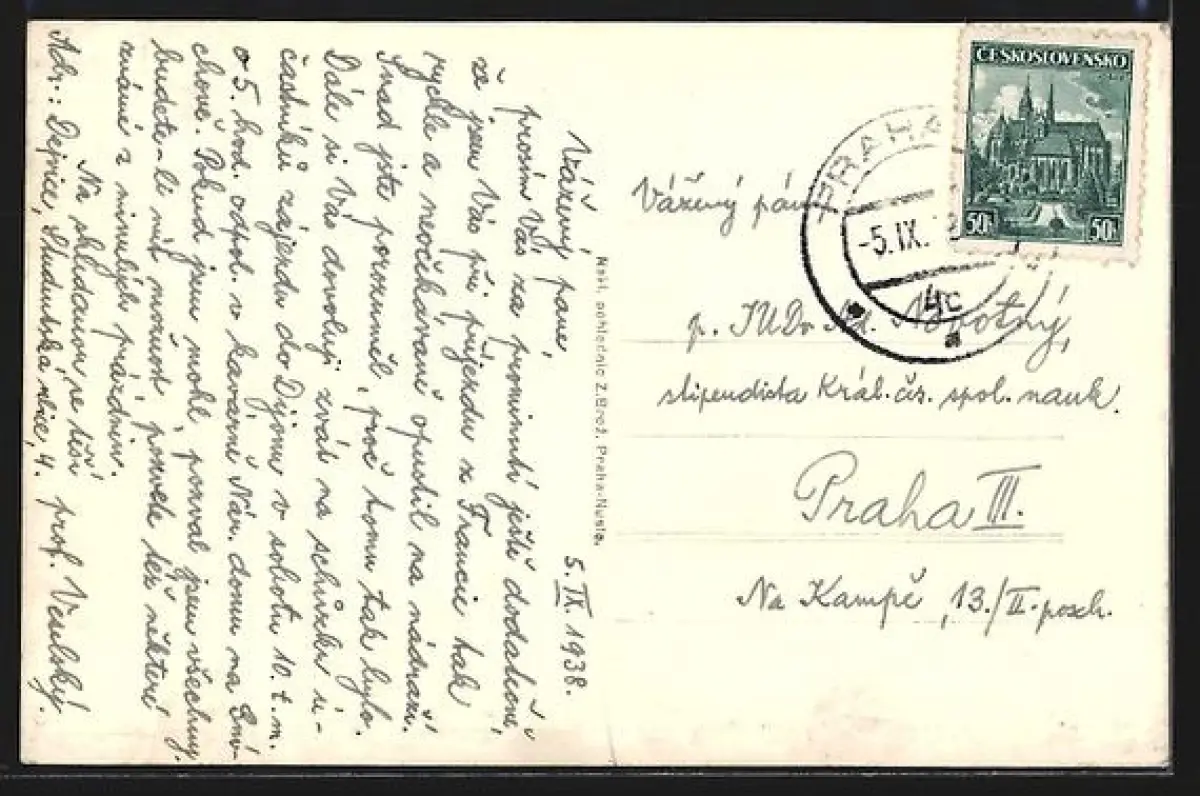 5. IX. 1938.
Vážený pane,
prosím Vás za prominutí ještě dodatečně,
že jsem Vás při příjezdu z Francie tak
rychle a neočekávaně opustil na nádraží.
Snad jste porozuměl, proč tomu tak bylo.
Dále si Vás dovoluji zvát na schůzku ú-
častníků zájezdu do Dijonu v sobotu 10. t. m.
o 5. hod. odpol. v kavárně Nár. domu na Smí-
chově. Pokud jsem mohl, pozval jsem všechny,
budete-li mít možnost, pozvete též některé
známé z minulých prázdnin.
Na shledanou se těší
prof. Veselský.
Adr.: Dejvice, Studentská ulice, 4.
Nakl. pohlednic Z. Brož. Praha-Nusle.
ČESKOSLOVENSKO
50h 50h
PRAHA
-5.IX.
4c
a
Vážený pán
p. JUDr Novotný,
stipendista Král. čes. spol. nauk.
Praha III.
Na Kampě, 13./II. posch.